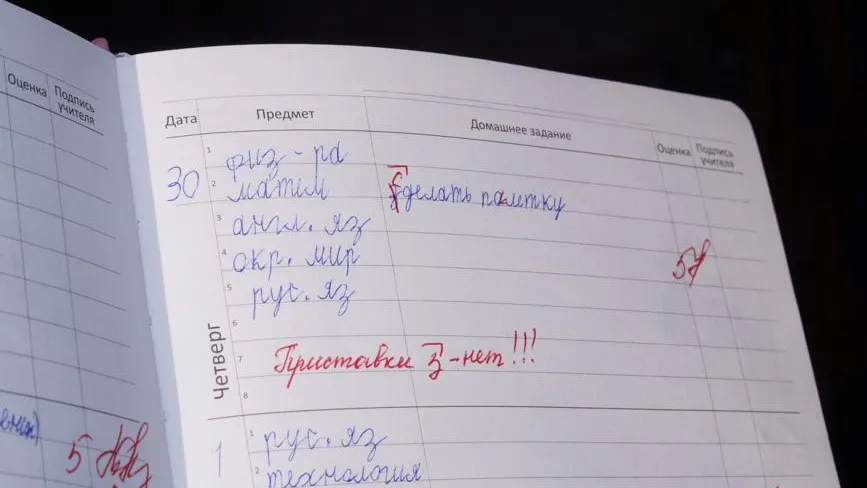 Оценка
Подпись учителя
внки)
5
Дата Предмет Домашнее задание Оценка Подпись учителя
30
1 физ-ра
2 матем сделать паметку
3 англ. яз
4 окр. мир 5
5 рус. яз
6
Четверг
7 Приставки з-нет!!!
8
1
1 рус. яз
2 технология